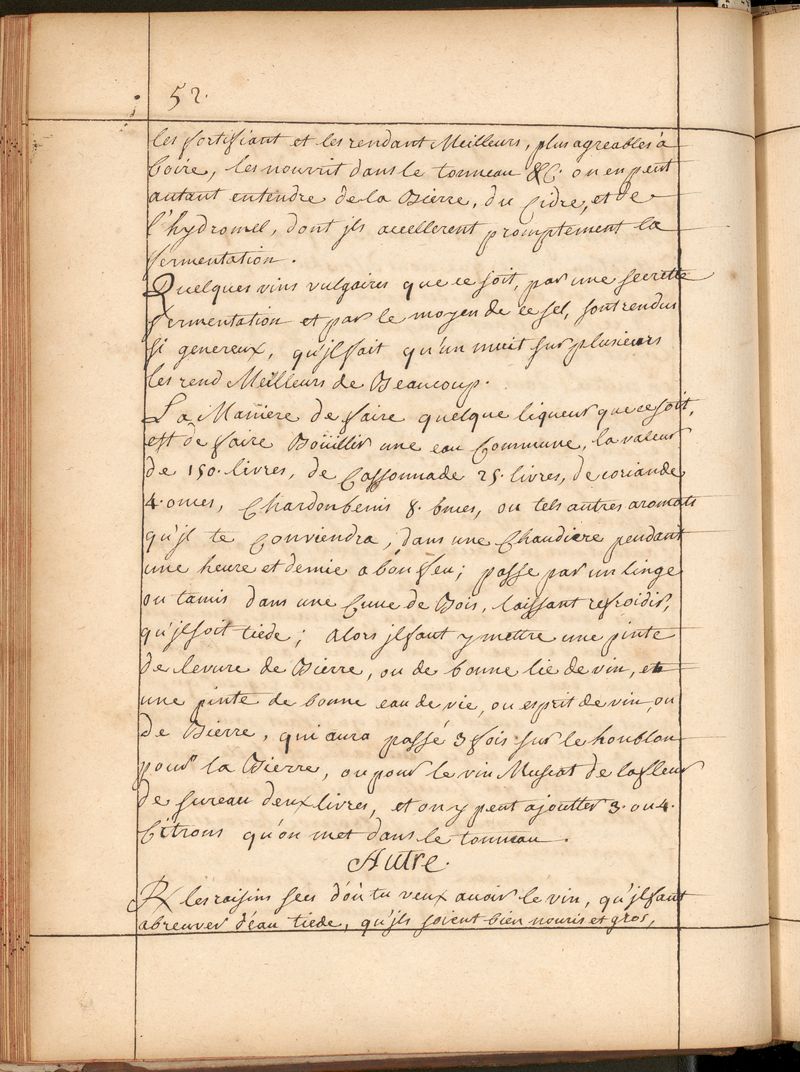 52.
les fortifiant et les rendant Meilleurs, plus agreables à
boire, les nourrit dans le tonneau &C. on en peut
autant entendre de la Bierre, du Cidre, et de
l'hydromel, dont jls accellerent promptement la
fermentation.
Quelques vins vulgaires que ce soit, par une secrette
fermentation et par le moyen de ce sel, sont rendus
si genereux, qu'jl fait qu'un muit sur plusieurs
les rend Meilleurs de Beaucoup.
La Maniere de faire quelque liqueur que ce soit,
est de faire Boüillir une eau Commune, la valeur
de 150. livres, de Cassonnade 25. livres, de coriande
4. onces, Chardonbenis 8. onces, ou tels autres aromats
qu'jl te Conviendra, dans une Chaudiere pendant
une heure et demie a bon feu; passe par un linge
ou tamis dans une Cuve de Bois, laissant refroidir,
qu'jl soit tiede; Alors jl faut y mettre une pinte
de levure de Bierre, ou de bonne lie de vin, et
une pinte de bonne eau de vie, ou esprit de vin, ou
de Bierre, qui aura passé 3 fois sur le houblon
pour la Bierre, ou pour le vin Muscat de la fleur
de sureau deux livres, et on y peut ajoutter 3. ou 4.
Citrons qu'on met dans le tonneau.
Autre.
℞ les raisins secs d'où tu veux avoir le vin, qu'jl faut
abreuver d'eau tiede, qu'jls soient bien nouris et gros,